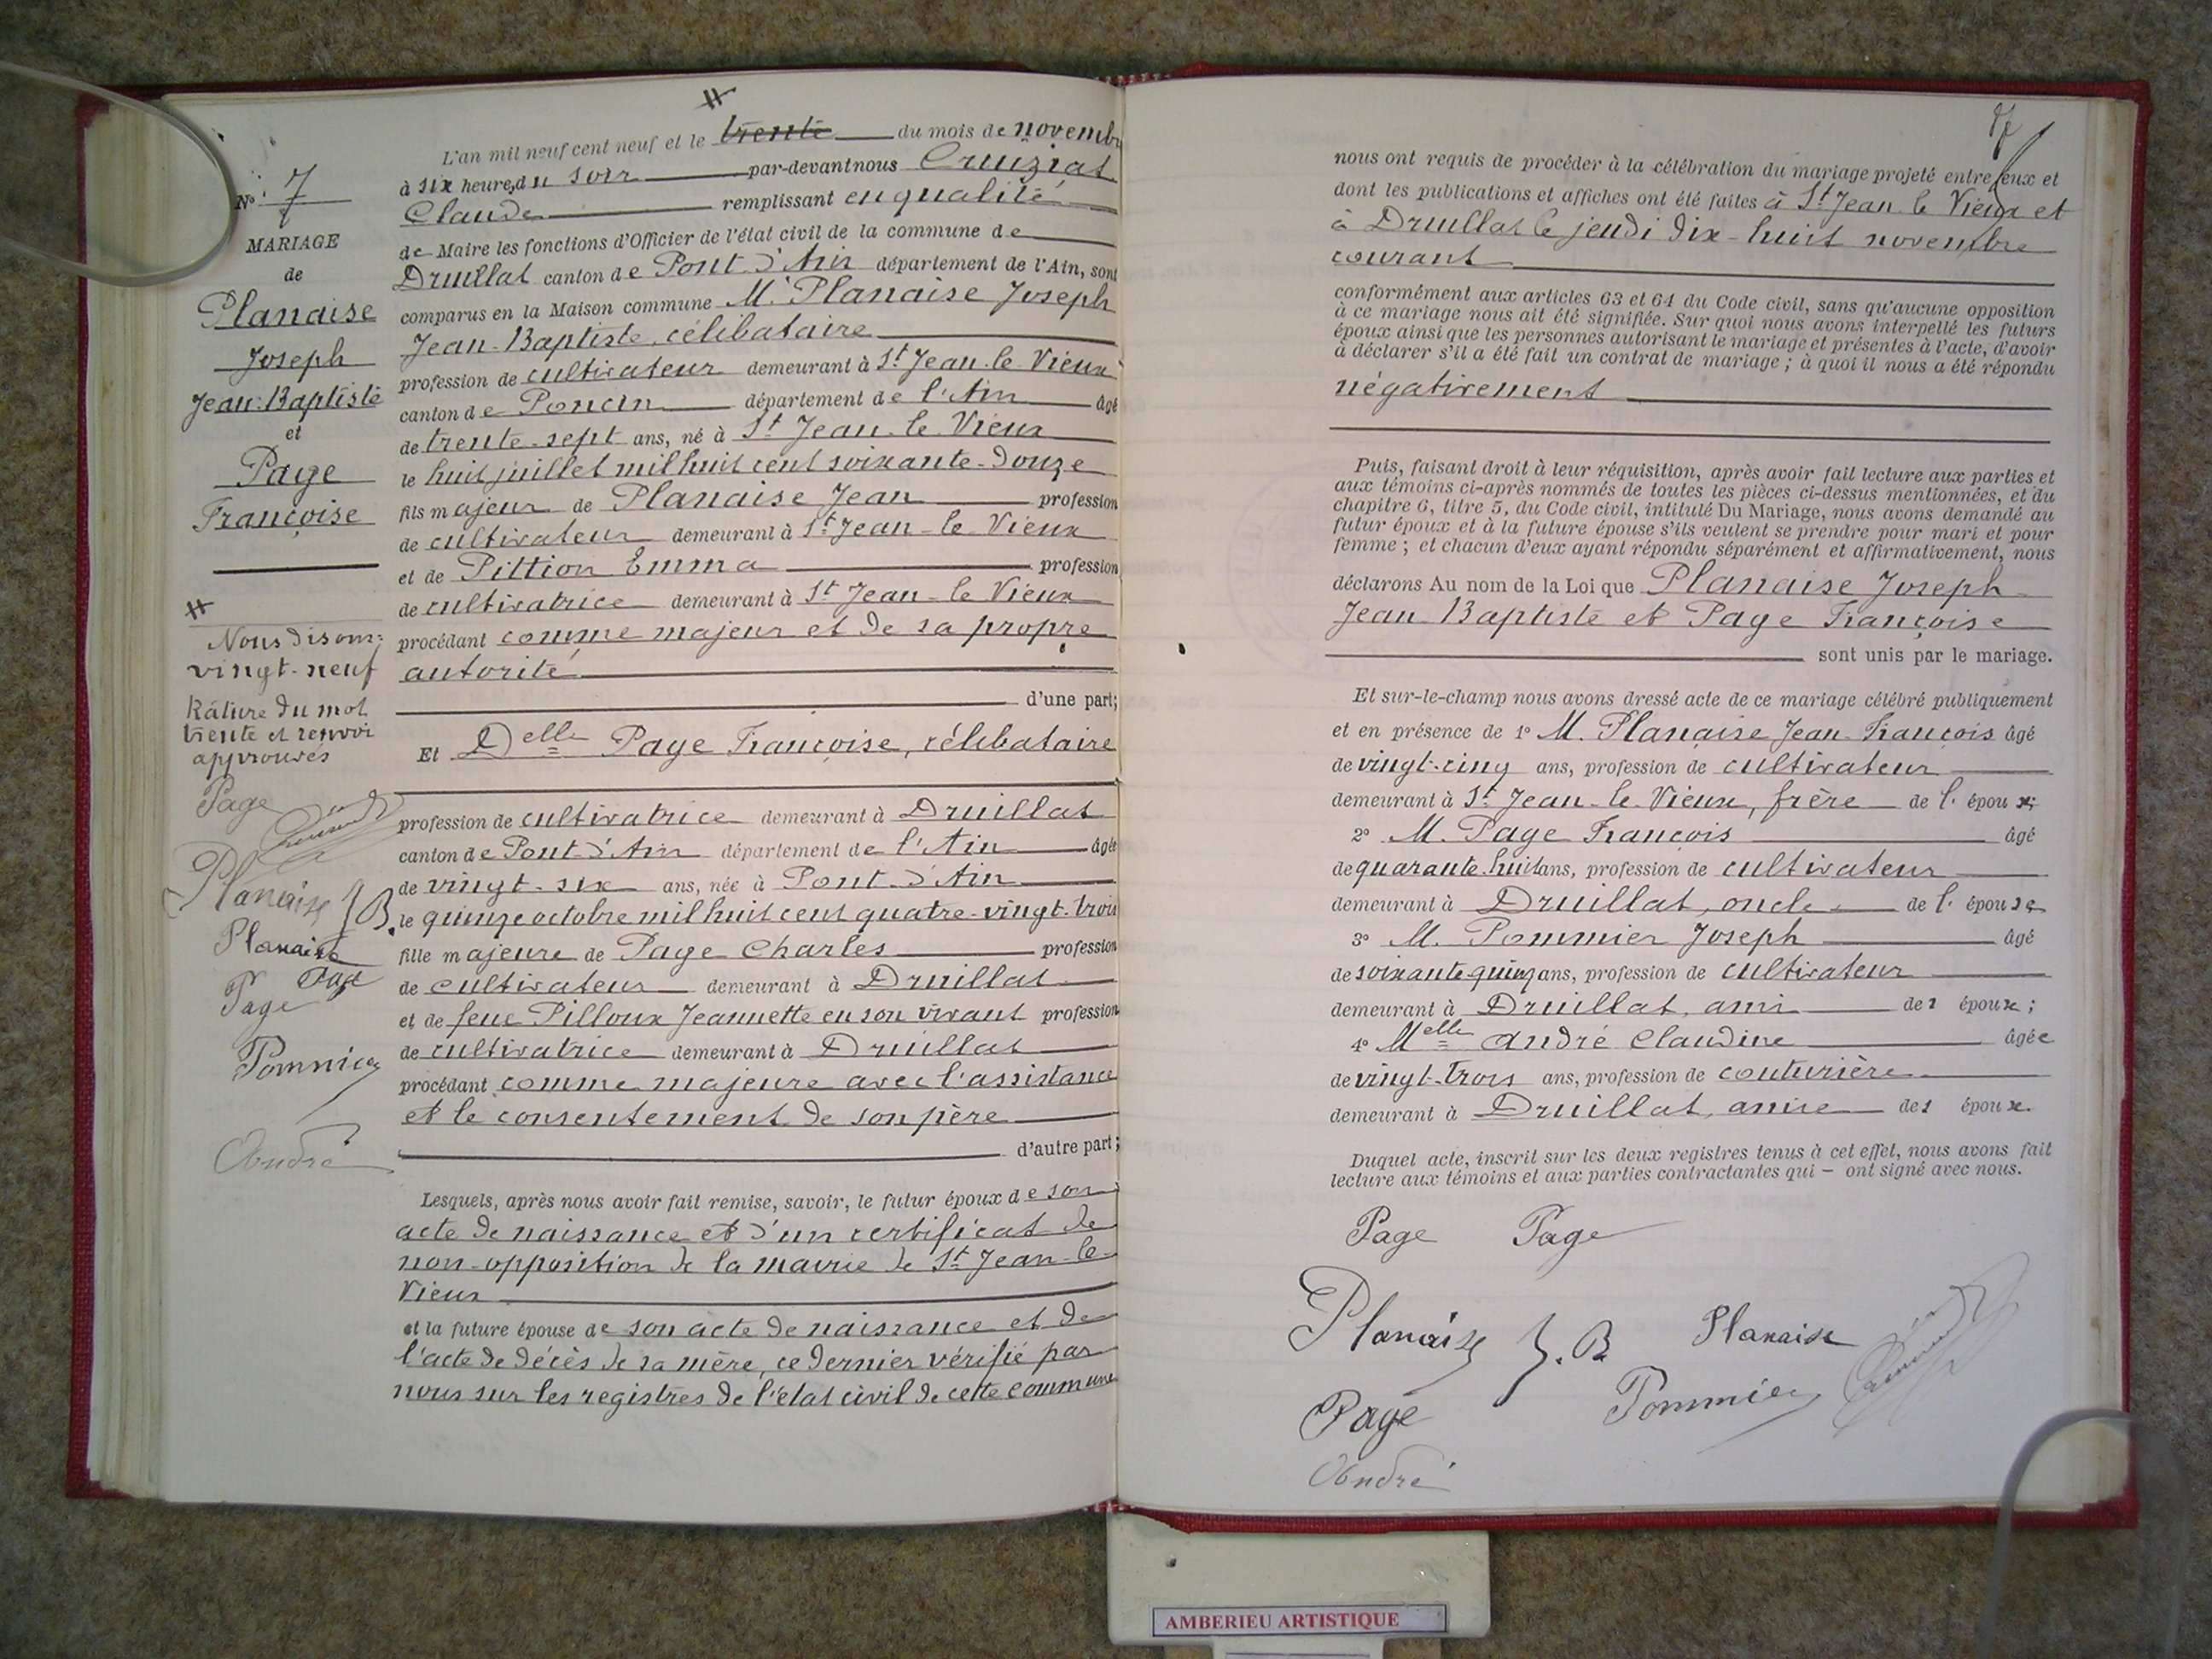 #
L'an mil neuf cent neuf et le trente du mois de novembr
à six heures du soir par-devant nous Cruiziat
Claude remplissant en qualité
de Maire les fonctions d'Officier de l'état civil de la commune de
Druillat canton de Pont d'Ain département de l'Ain, sont
comparus en la Maison commune M. Planaise Joseph
Jean-Baptiste, célibataire
profession de cultivateur demeurant à St Jean-le-Vieux
canton de Poncin département de l'Ain âgé
de trente-sept ans, né à St Jean-le-Vieux
le huit juillet mil huit cent soixante-douze
fils majeur de Planaise Jean profession
de cultivateur demeurant à St Jean-le-Vieux
et de Pittion Emma profession
de cultivatrice demeurant à St Jean-le-Vieux
procédant comme majeur et de sa propre
autorité
d'une part;
Et Delle Page Françoise, célibataire
profession de cultivatrice demeurant à Druillat
canton de Pont-d'Ain département de l'Ain âgée
de vingt-six ans, née à Pont-d'Ain
le quinze octobre mil huit cent quatre-vingt-trois
fille majeure de Page Charles profession
de cultivateur demeurant à Druillat
et de feue Pilloux Jeannette en son vivant profession
de cultivatrice demeurant à Druillat
procédant comme majeure avec l'assistance
et le consentement de son père
d'autre part;
Lesquels, après nous avoir fait remise, savoir, le futur époux de son
acte de naissance et d'un certificat de
non-opposition de la mairie de St Jean-le-
Vieux
et la future épouse de son acte de naissance et de
l'acte de décès de sa mère, ce dernier vérifié par
nous sur les registres de l'état civil de cette commune
N° 7
MARIAGE
de
Planaise
Joseph
Jean-Baptiste
et
Page
Françoise
#
Nous disons:
vingt-neuf
Râture du mot
trente et renvoi
approuvés
Page
Planaise J B.
Planaise
Page
Page
Pommier
André
nous ont requis de procéder à la célébration du mariage projeté entre eux et
dont les publications et affiches ont été faites à St Jean-le Vieux et
à Druillat le jeudi dix-huit novembre
courant
conformément aux articles 63 et 64 du Code civil, sans qu'aucune opposition
à ce mariage nous ait été signifiée. Sur quoi nous avons interpellé les futurs
époux ainsi que les personnes autorisant le mariage et présentes à l'acte, d'avoir
à déclarer s'il a été fait un contrat de mariage ; à quoi il nous a été répondu
négativement
Puis, faisant droit à leur réquisition, après avoir fait lecture aux parties et
aux témoins ci-après nommés de toutes les pièces ci-dessus mentionnées, et du
chapitre 6, titre 5, du Code civil, intitulé Du Mariage, nous avons demandé au
futur époux et à la future épouse s'ils veulent se prendre pour mari et pour
femme ; et chacun d'eux ayant répondu séparément et affirmativement, nous
déclarons Au nom de la Loi que Planaise Joseph
Jean-Baptiste et Page Françoise
sont unis par le mariage.
Et sur-le-champ nous avons dressé acte de ce mariage célébré publiquement
et en présence de 1° M. Planaise Jean-François âgé
de vingt-cinq ans, profession de cultivateur
demeurant à St Jean-le-Vieux, frère de l' époux;
2° M. Page François âgé
de quarante-huit ans, profession de cultivateur
demeurant à Druillat, oncle de l' épouse
3° M. Pommier Joseph âgé
de soixante-quinze ans, profession de cultivateur
demeurant à Druillat, ami des époux ;
4° Melle André Claudine âgée
de vingt-trois ans, profession de couturière
demeurant à Druillat, amie des époux.
Duquel acte, inscrit sur les deux registres tenus à cet effet, nous avons fait
lecture aux témoins et aux parties contractantes qui – ont signé avec nous.
Page Page
Planaise J. B Planaise
Page Pommier
André
AMBERIEU ARTISTIQUE